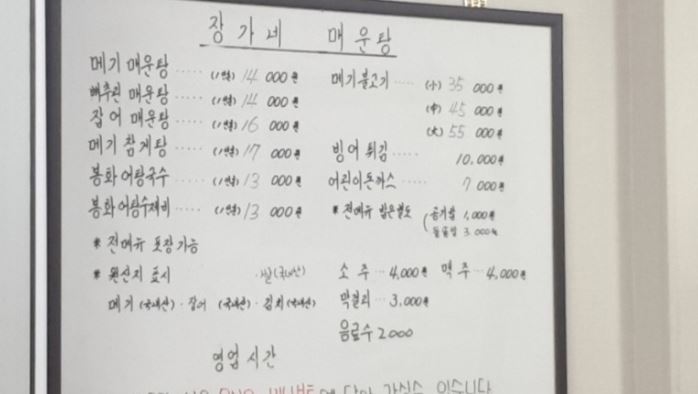 장가네 매운탕
메기 매운탕 ····· (1인분) 14 000원
빠추린 매운탕 ···· (1인분) 14 000원
잡어 매운탕 ····· (1인분) 16 000원
메기 참게탕 ····· (1인분) 17 000원
봉화 어탕국수 ····· (1인분) 13 000원
봉화 어탕수제비 ····· (1인분) 13 000원
* 전메뉴 포장 가능
* 원산지 표시 쌀(국내산)
메기 (국내산) · 잡어 (국내산) · 김치 (국내산)
메기불고기 ···· (小) 35 000원
(中) 45 000원
(大) 55 000원
빙어 튀김 ····· 10,000원
어린이돈까스 ···· 7 000원
* 전메뉴 밥은별도 (공기밥 1,000원
돌솥밥 3,000원
소주 ·· 4,000원 맥주 ·· 4,000원
막걸리 ·· 3,000원
음료수 2000
영업시간